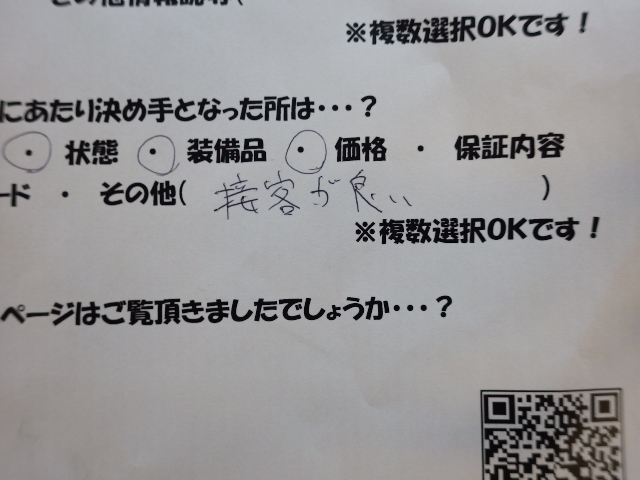 ※複数選択OKです!
にあたり決め手となった所は・・・?
・ 状態 ・ 装備品 ・ 価格 ・ 保証内容
ード ・ その他( 接客が良い )
※複数選択OKです!
ページはご覧頂きましたでしょうか・・・?